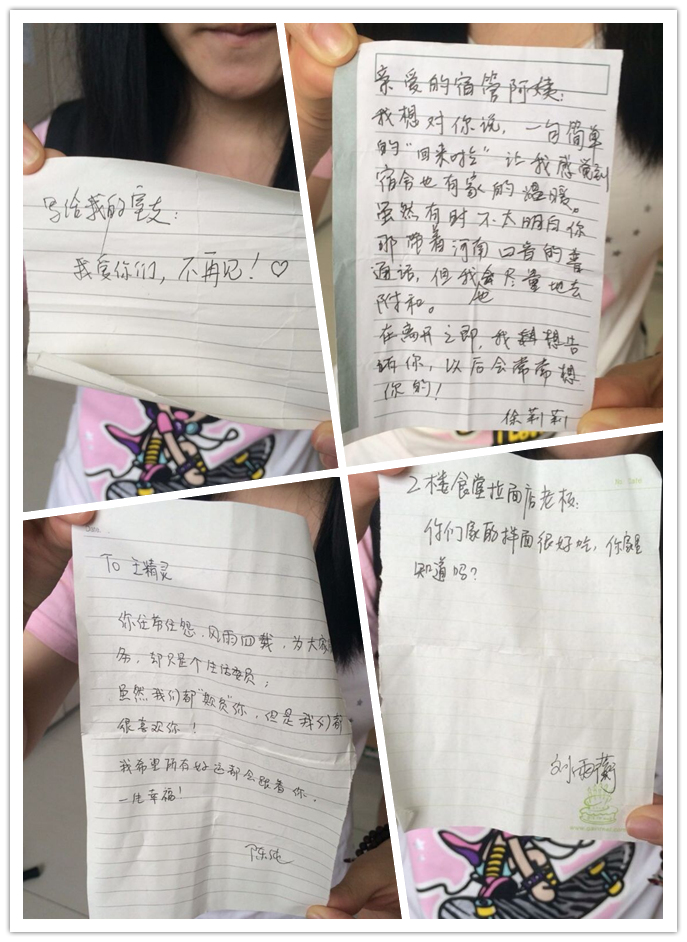 写给我的室友:
我爱你们,不再见!♡
亲爱的宿管阿姨:
我想对你说,一句简单
的“回来啦”让我感觉到
宿舍也有家的温暖。
虽然有时不太明白你
那带着河南口音的普
通话,但我也会尽量地去
附和。
在离开之即,我想告
诉你,以后会常常想
你的!
徐莉莉
To 王精灵
你任劳任怨,风雨四载,为大家
务,却只是个生活委员;
虽然我们都“欺负”你,但是我们都
很喜欢你!
我希望所有好运都会跟着你,
一生幸福!
陈纯
2楼食堂拉面店老板:
你们家的拌面很好吃,你
知道吗?